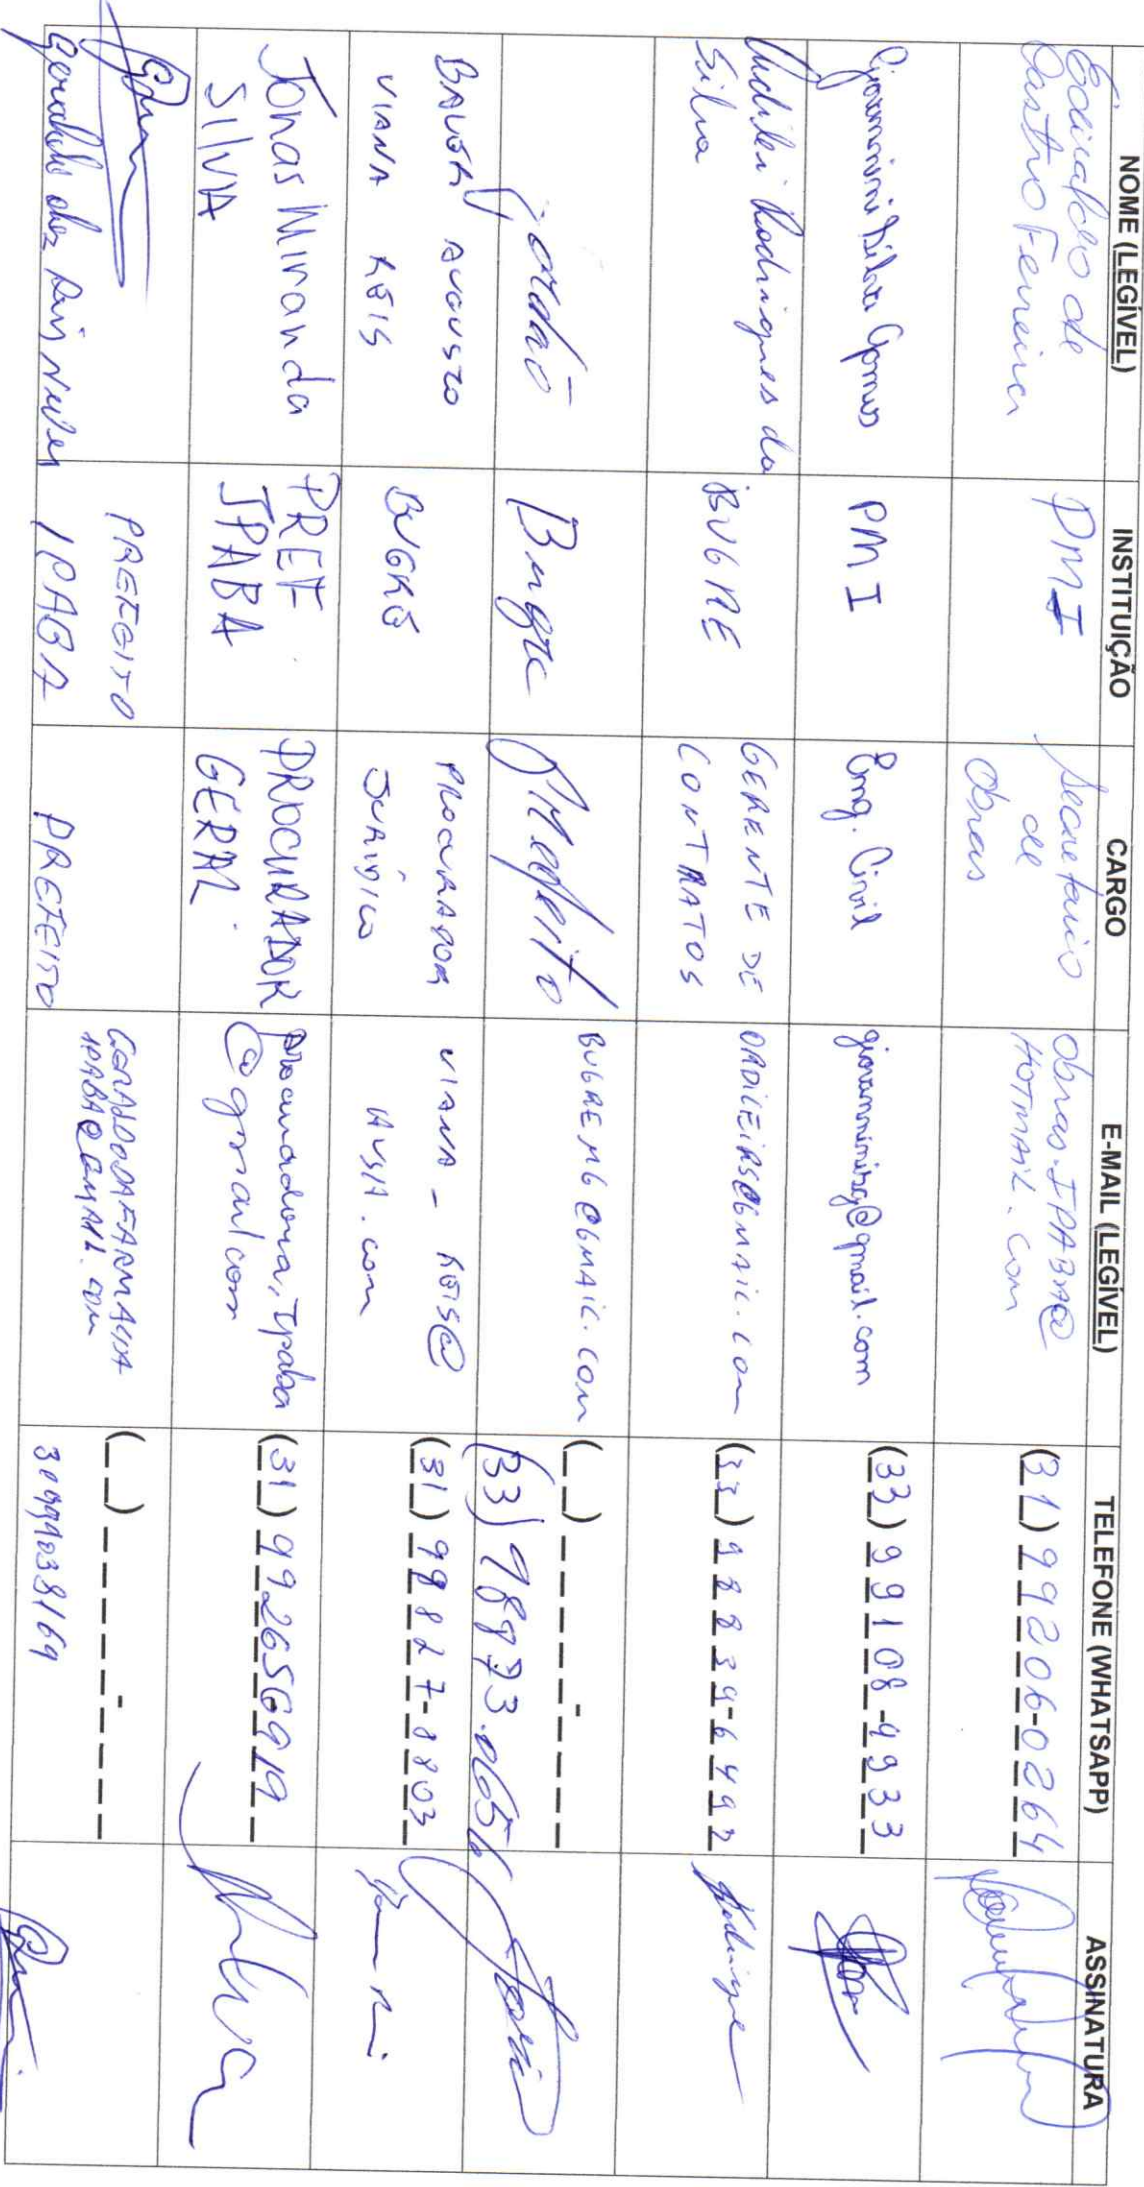 NOME (LEGÍVEL) INSTITUIÇÃO CARGO E-MAIL (LEGÍVEL) TELEFONE (WHATSAPP) ASSINATURA
Edivaldo de Castro Ferreira PMI Secretário de Obras obras.IPABA@HOTMAIL.com (31) 99206-0264
Giovannini Gomes PMI Eng. Civil giovanninisg@gmail.com (33) 99108-4933
Rodrigues da Silva BUGRE GERENTE DE CONTRATOS ORDILEIRS@GMAIL.COM (33) 98839-6492
Jordão Bugre Prefeito BUGREMG@GMAIL.COM (__) _____-____
(33) 98873.0656
AUGUSTO VIANA REIS BUGRE PROCURADOR JURÍDICO VIANA_REIS@ (31) 99827-8803
Jonas Miranda SILVA PREF. IPABA PROCURADOR GERAL. procuradoria,Ipaba @gmail.com (31) 992656919
Geraldo dos Reis Neves PREFEITO IPABA PREFEITO GERALDODAFARMACIA IPABA@GMAIL.com (__) _____-____